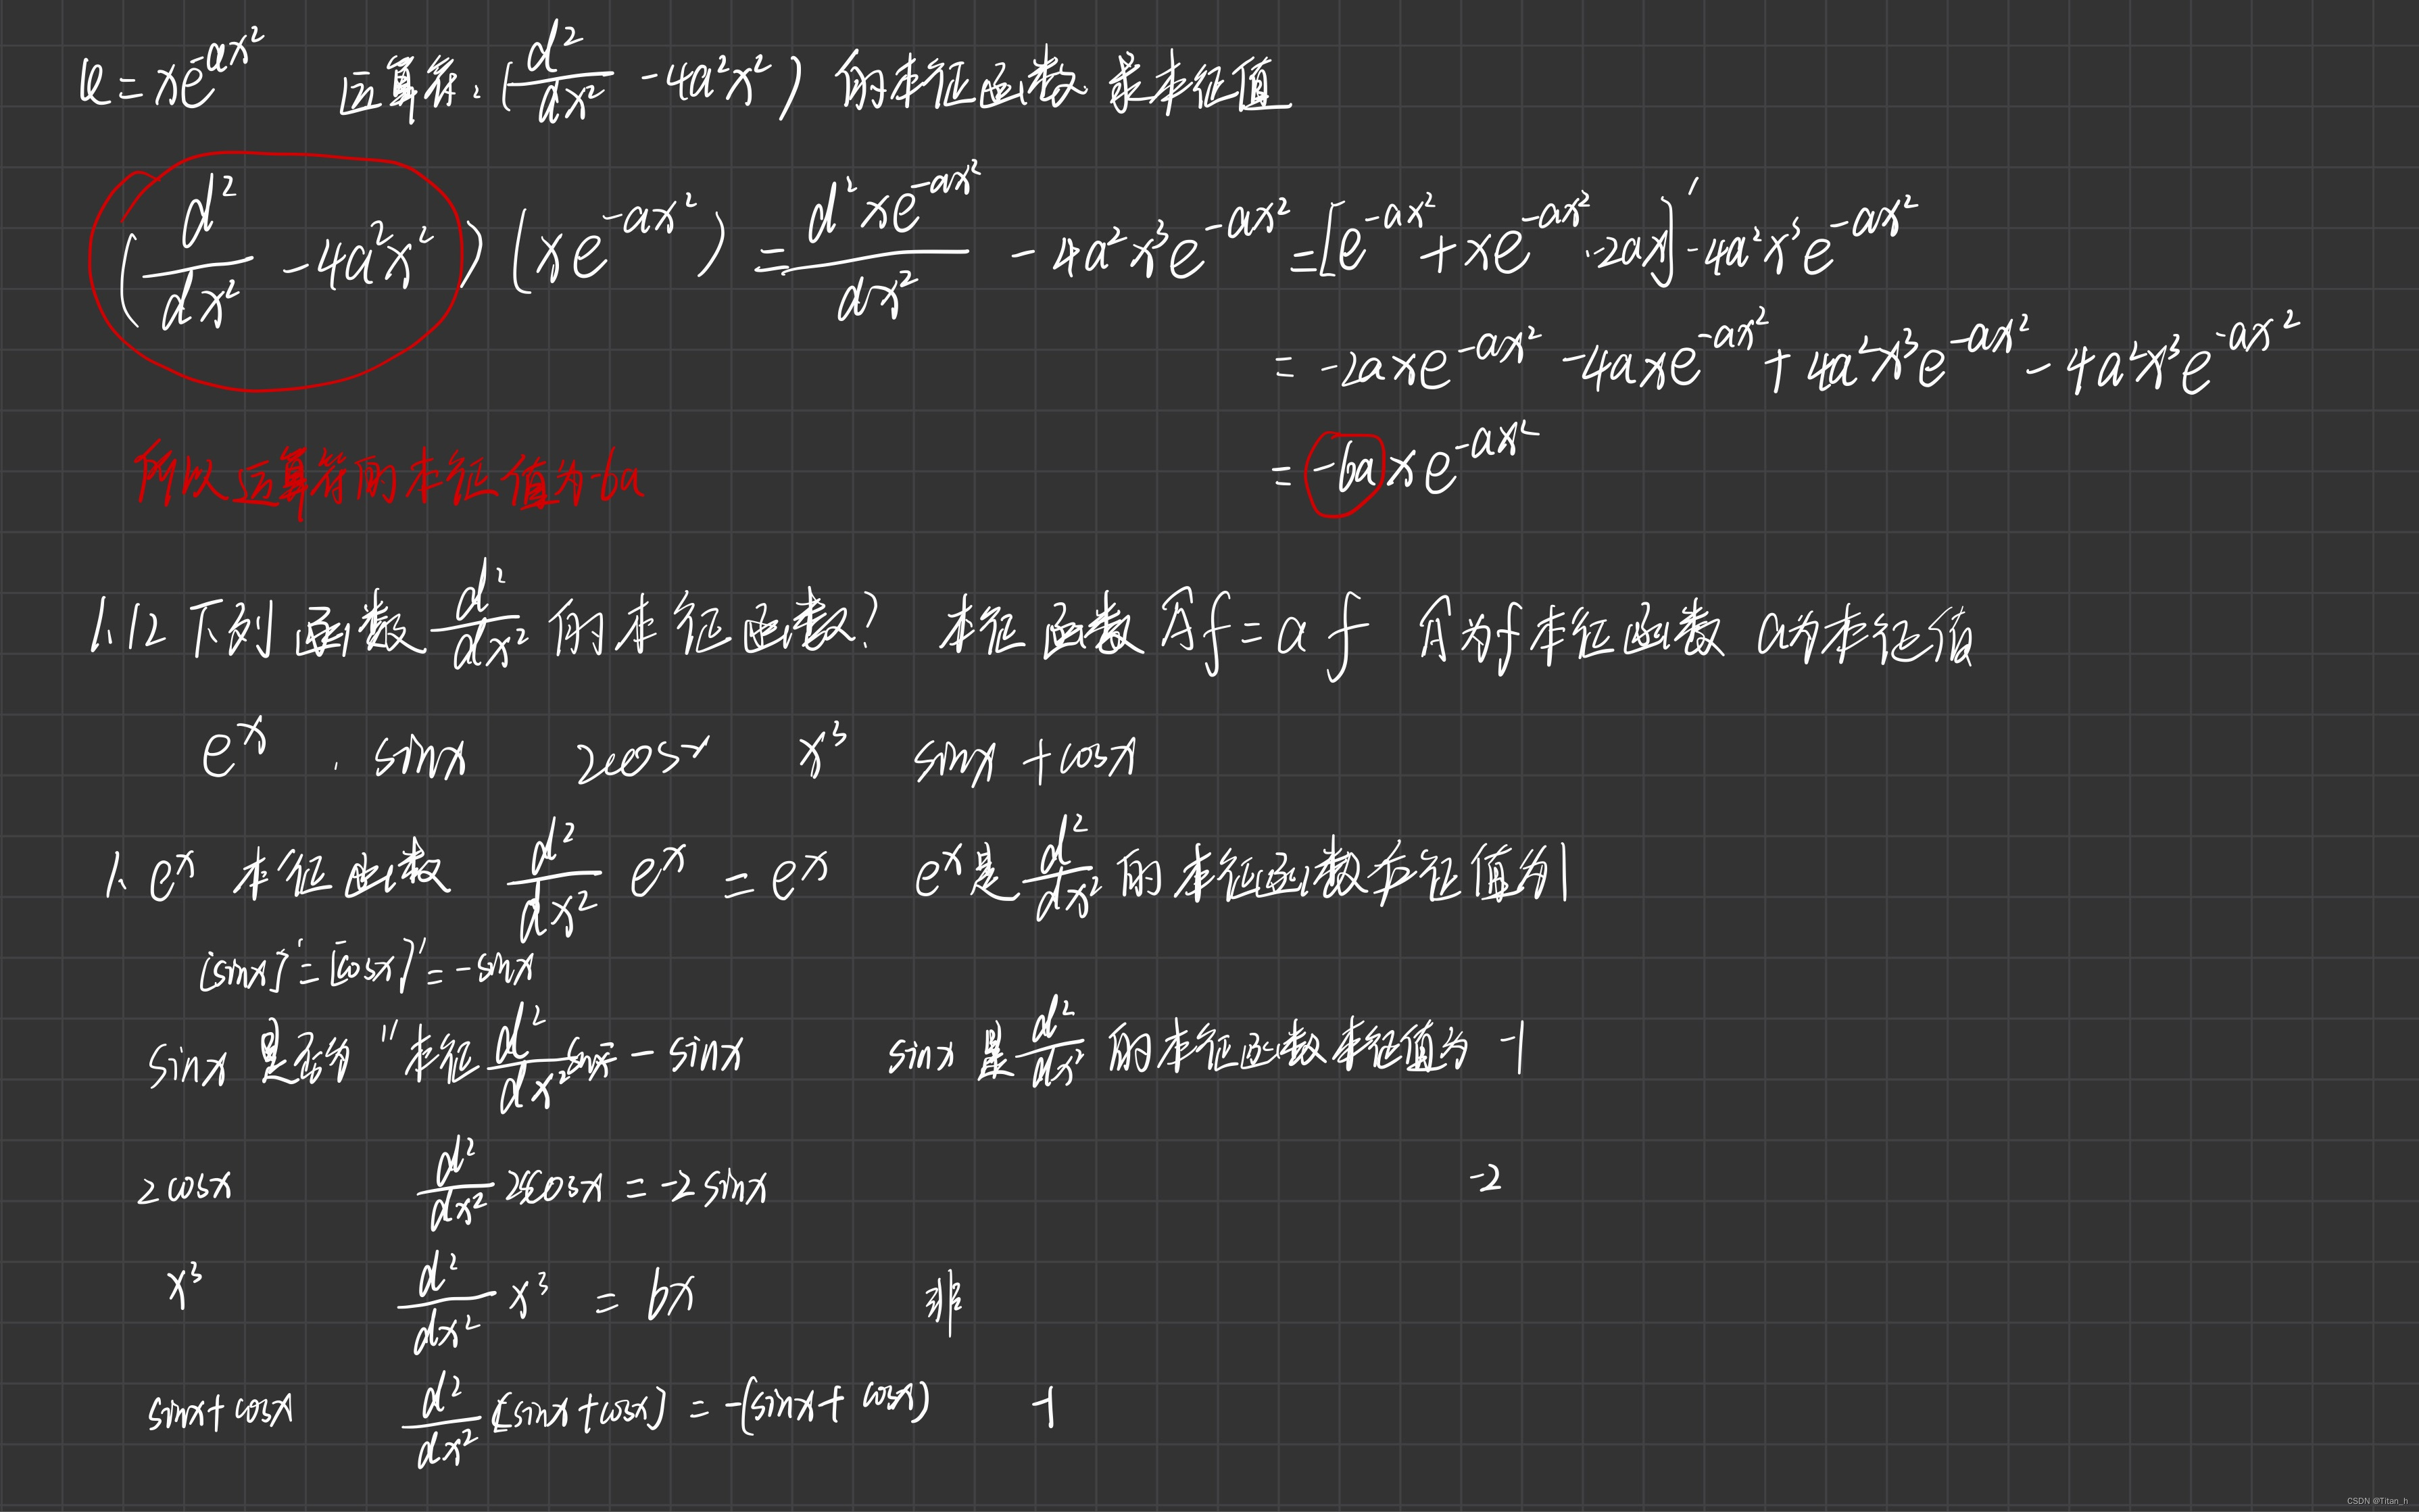 φ=xe^{-ax²} 运算符:(d²/dx² -4a²x²) 的本征函数 求本征值
(d²/dx² -4a²x²)(xe^{-ax²}) = d²xe^{-ax²}/dx² - 4a²x³e^{-ax²} = [e^{-ax²}+xe^{-ax²}·-2ax]' -4a²x³e^{-ax²}
= -2axe^{-ax²} -4axe^{-ax²} +4a²x³e^{-ax²} - 4a²x³e^{-ax²}
= -6axe^{-ax²}
所以运算符的本征值为-6a
1.12 下列函数 d²/dx² 的本征函数? 本征函数 Âf=af Â为f本征函数 a为本征值
e^x . sinx 2cosx x³ sinx+cosx
1. e^x 本征函数 d²/dx² e^x = e^x e^x是 d²/dx² 的本征函数本征值为1
(sinx)''=[cosx]'=-sinx
sinx 是否为"本征 d²/dx² sinx=-sinx sinx 是 d²/dx² 的本征函数本征值为 -1
2cosx d²/dx² 2cosx = -2sinx -2
x³ d²/dx² x³ = 6x 非
sinx+cosx d²/dx² (sinx+cosx) = -(sinx+cosx) -1
CSDN @Titan_h